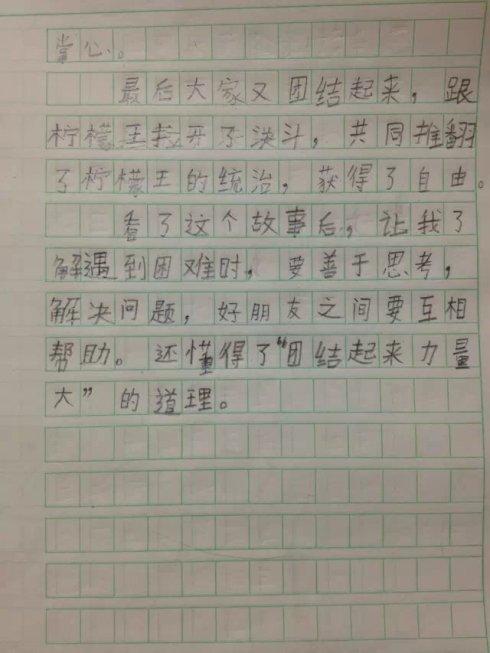 掌心。
最后大家又团结起来，跟
柠檬王拉开了决斗，共同推翻
了柠檬王的统治，获得了自由。
看了这个故事后，让我了
解遇到困难时，要善于思考，
解决问题，好朋友之间要互相
帮助。还懂得了“团结起来力量
大”的道理。